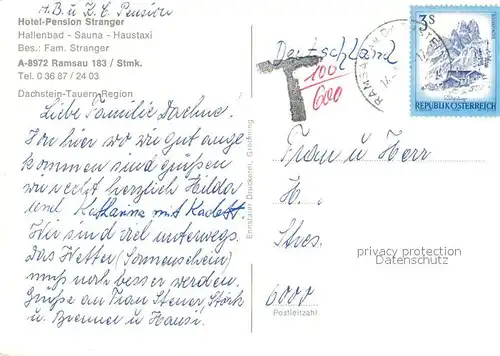 H.B. u. Z. E Pension
Hotel-Pension Stranger
Hallenbad - Sauna - Haustaxi
Bes.: Fam. Stranger
A-8972 Ramsau 183 / Stmk.
Tel. 0 36 87 / 24 03
Dachstein-Tauern-Region
Liebe Familie
Von hier wo wir gut ange
kommen sind grüßen
wir recht herzlich Hilda
und Katharina mit Kadett.
Wir sind viel unterwegs.
Das Wetter (Sonnenschein)
muß noch besser werden.
Grüße an Frau Stork
u. Brenner u. Hansi.
Ennstaler Druckerei, Gröbming
Deutschland
T 100
600
RAMSAU AM DACHSTEIN
3 S
REPUBLIK ÖSTERREICH
Frau u Herr
H.
Stres.
privacy protection
Datenschutz
6000
Postleitzahl